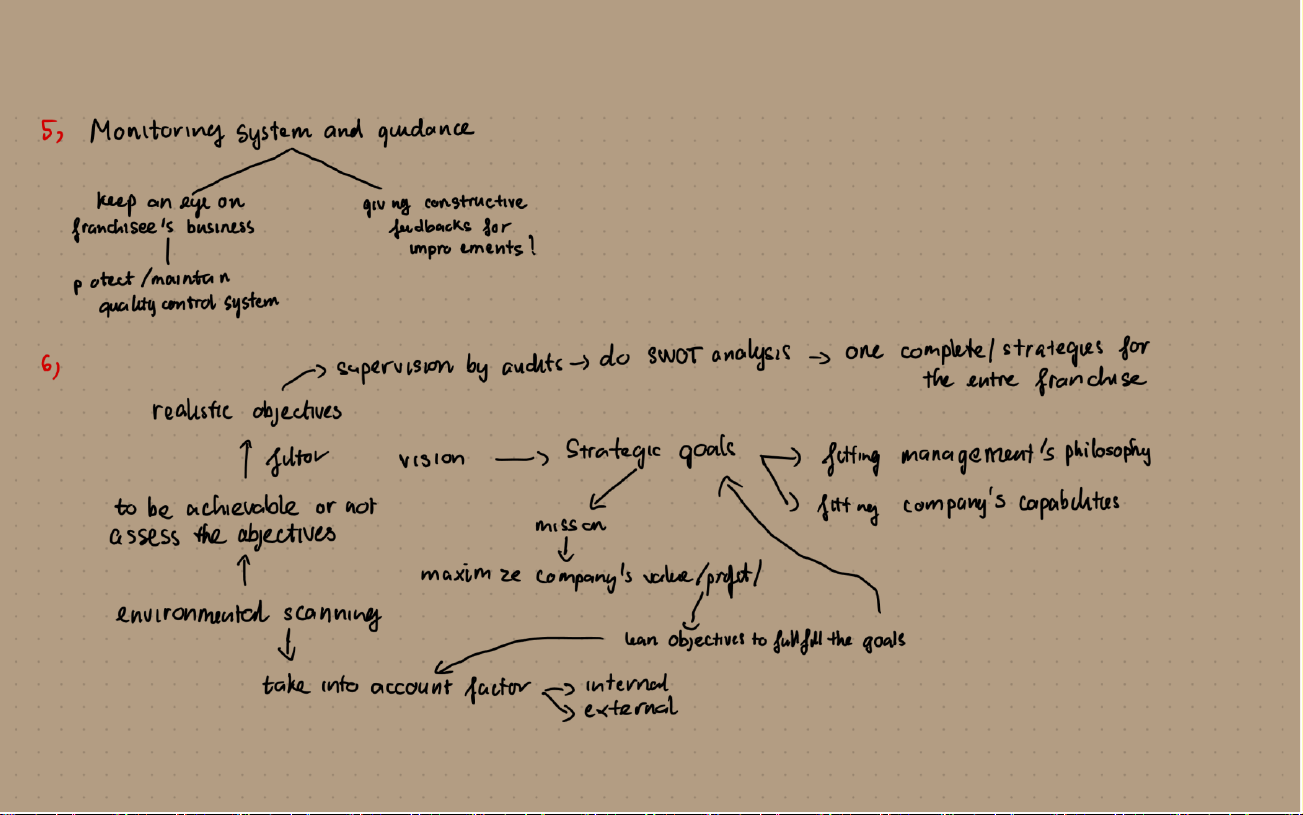 5, Monitoring system and guidance
keep an eye on
franchisee's business
giving constructive
feedbacks for
impro ements!
p otect /maintain
quality control system
6,
→ supervision by audits → do SWOT analysis → one complete/ strategies for
the entire franchise
realistic objectives
↑ filtor
vision → Strategic goals → fitting management's philosophy
→ fitting company's capabilities
to be achievable or not
assess the objectives
mission
maximize company's value /profit/
environmental scanning
lean objectives to fullfill the goals
take into account factor → internal
→ external